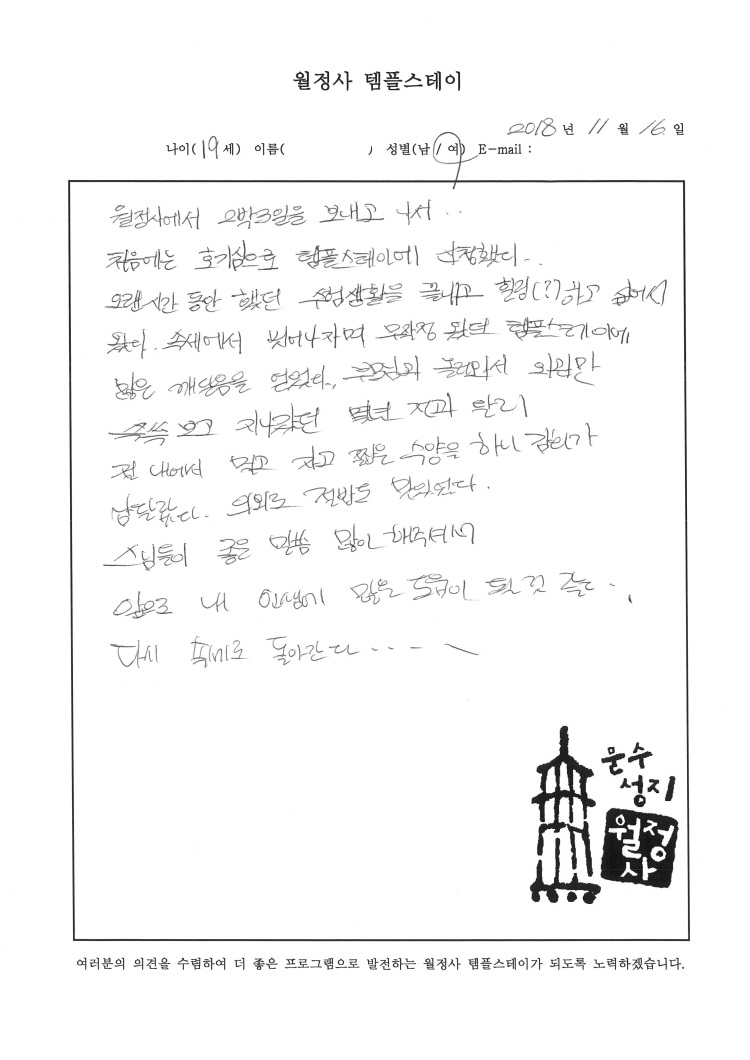 월정사 템플스테이
2018 년 11 월 16 일
나이( 19 세) 이름( ) 성별(남 / 여) E-mail :
월정사에서 2박3일을 보내고 나서 ..
처음에는 호기심으로 템플스테이에 신청했다..
오랜시간 동안 했던 수험생활을 끝내고 힐링(?)하고 싶어서
왔다. 속세에서 벗어나자며 무작정 왔던 템플스테이에
많은 깨달음을 얻었다. 부모님과 놀러와서 외관만
쓱쓱 보고 지나갔던 몇년 전과 달리
절 내에서 먹고 자고 짧은 수양을 하니 감회가
남달랐다. 의외로 절밥도 맛있었다.
스님들이 좋은 말씀 많이 해주셔서
앞으로 내 인생에 많은 도움이 될 것 같다..
다시 속세로 돌아간다...
문수
성지
월정
사
여러분의 의견을 수렴하여 더 좋은 프로그램으로 발전하는 월정사 템플스테이가 되도록 노력하겠습니다.